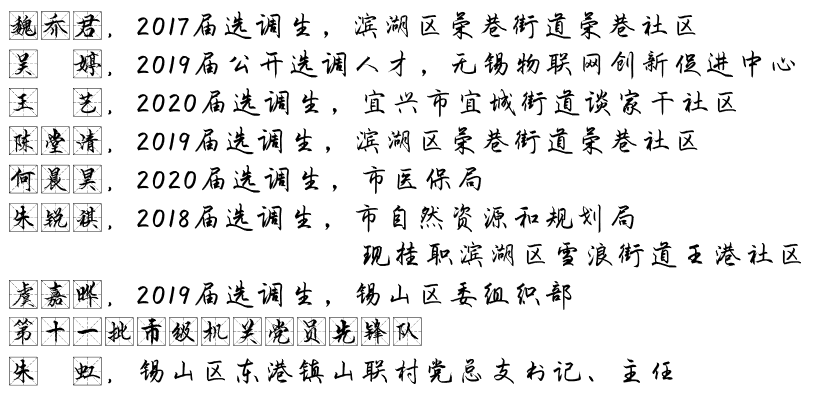 魏乔君，2017届选调生，滨湖区荣巷街道荣巷社区
吴 婷，2019届公开选调人才，无锡物联网创新促进中心
王 艺，2020届选调生，宜兴市宜城街道谈家干社区
陈堂清，2019届选调生，滨湖区荣巷街道荣巷社区
何晨昊，2020届选调生，市医保局
朱锐祺，2018届选调生，市自然资源和规划局
现挂职滨湖区雪浪街道王港社区
虞嘉晔，2019届选调生，锡山区委组织部
第十一批市级机关党员先锋队
朱 虹，锡山区东港镇山联村党总支书记、主任